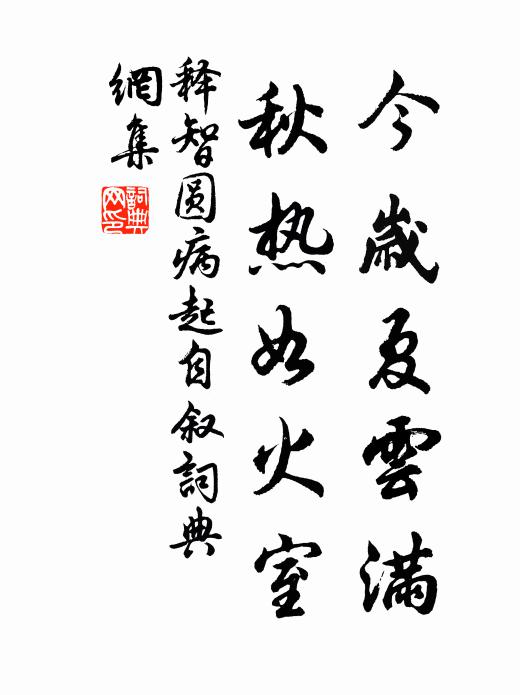 今歲夏雲滿
秋热如火室
释智圆病起自叙詞典
網集
詞典网印